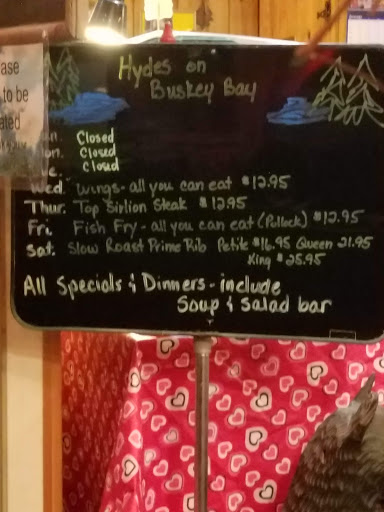 ase
to be
Hydes on
Buskey Bay
Closed
Closed
Closed
Wed. Wings - all you can eat $12.95
Thur. Top Sirlion Steak $12.95
Fri. Fish Fry - all you can eat (Pollock) $12.95
Sat. Slow Roast Prime Rib Petite $16.95 Queen 21.95
King $25.95
All Specials & Dinners - include
Soup & Salad bar